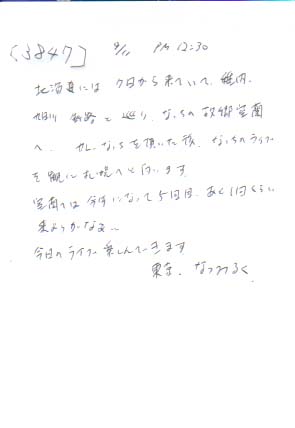 [3847] 9/11 PM 12:30
北海道には 7日から来ていて、稚内、
旭川 釧路と巡り、なっちの故郷室蘭
へ。カレーなっちを頂いた後、なっちのライブ
を観に札幌へと向います
室蘭では今年になって5回目、あと1回くらい
来ようかなぁ〜
今日のライブ楽しんできます
東京、なつ